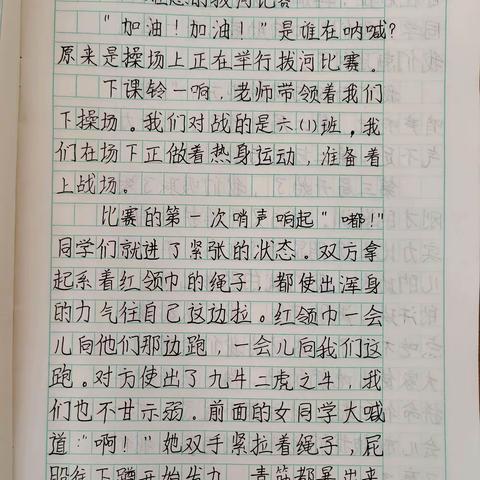 的拔河比赛
"加油！加油！"是谁在呐喊？
原来是操场上正在举行拔河比赛。
下课铃一响，老师带领着我们
下操场。我们对战的是六(1)班，我
们在场下正做着热身运动，准备着
上战场。
比赛的第一次哨声响起"嘟！"
同学们就进了紧张的状态。双方拿
起系着红领巾的绳子，都使出浑身
的力气往自己这边拉。红领巾一会
儿向他们那边跑，一会儿向我们这
跑。对方使出了九牛二虎之牛，我
们也不甘示弱。前面的女同学大喊
道："啊！"她双手紧拉着绳子，屁
股往下蹲开始发力，青筋都暴出来